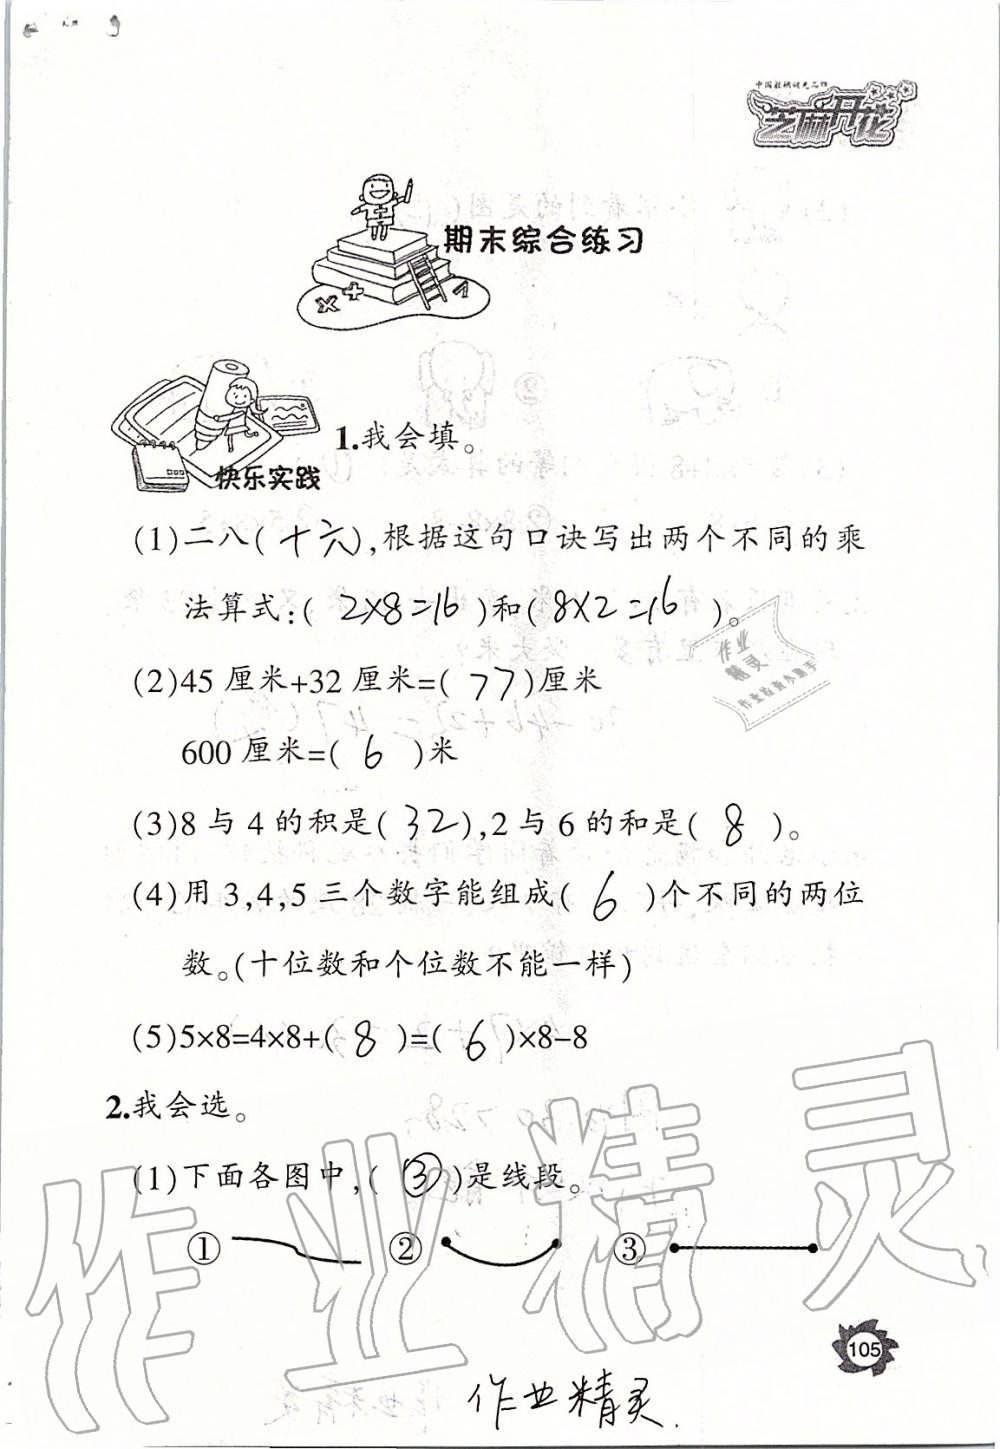 中国教辅领先品牌
芝麻开花
期末综合练习
快乐实践
1.我会填。
(1)二八(十六),根据这句口诀写出两个不同的乘
法算式:(2×8=16)和(8×2=16)。
(2)45厘米+32厘米=(77)厘米
600厘米=(6)米
(3)8与4的积是(32),2与6的和是(8)。
(4)用3,4,5三个数字能组成(6)个不同的两位
数。(十位数和个位数不能一样)
(5)5×8=4×8+(8)=(6)×8-8
2.我会选。
(1)下面各图中,(③)是线段。
① ② ③
105
作业精灵
作业精灵
作业精灵
作业检查小助手